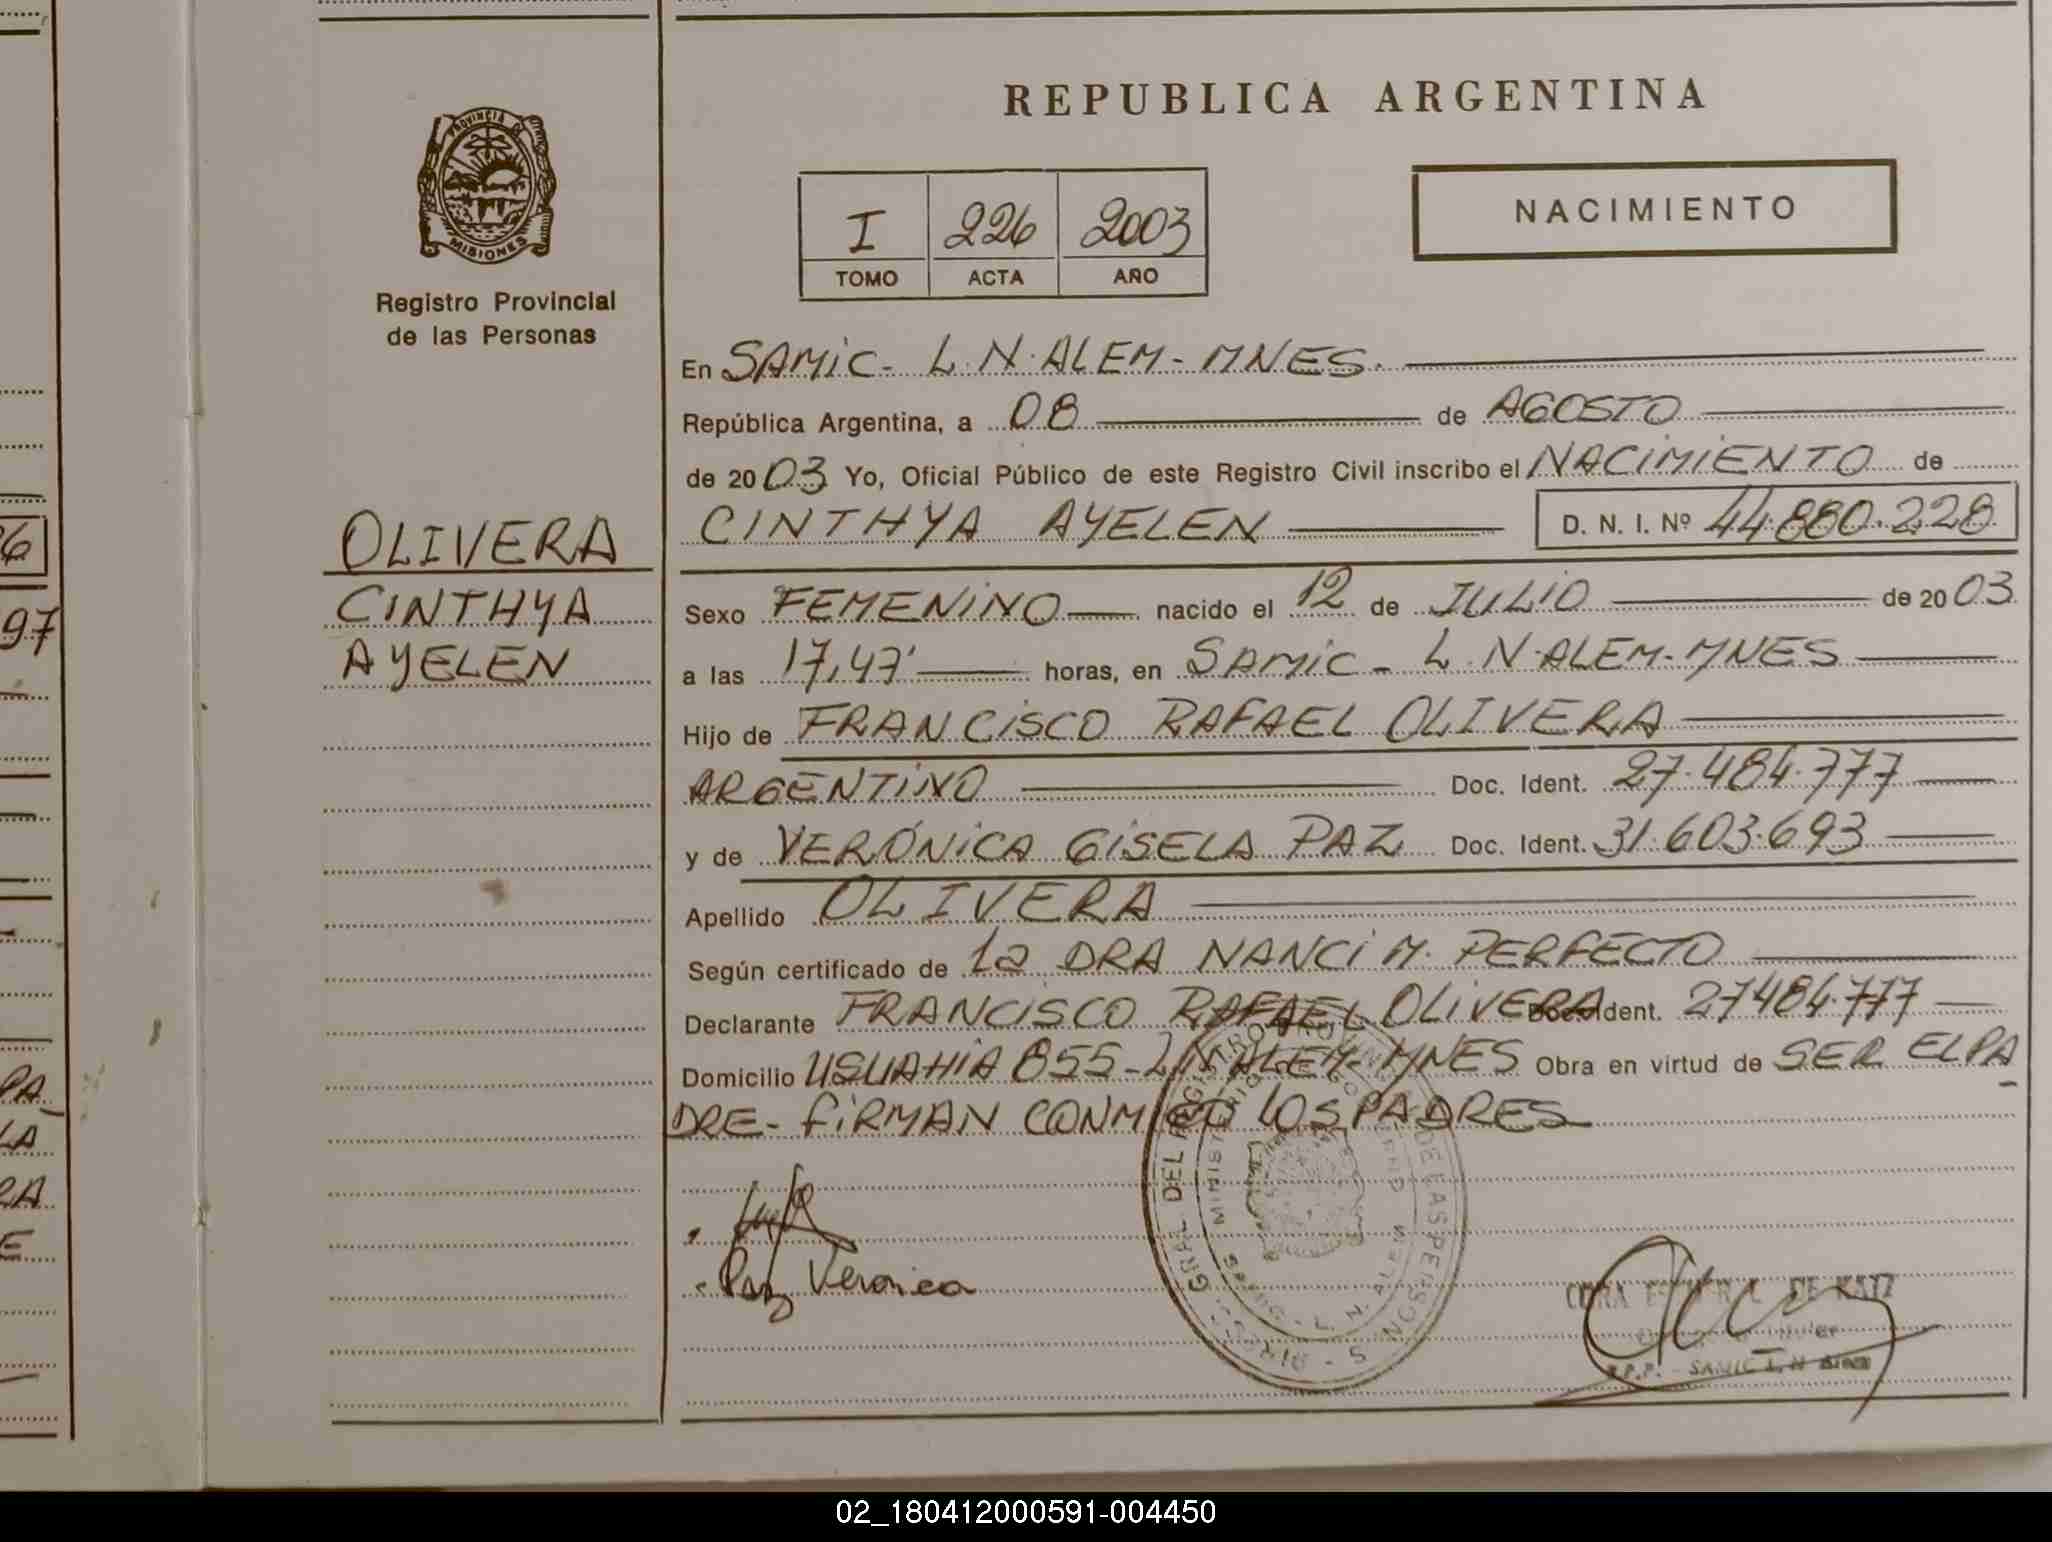 REPUBLICA ARGENTINA
PROVINCIA DE
MISIONES
Registro Provincial
de las Personas
I 226 2003
TOMO ACTA AÑO
NACIMIENTO
En SAMIC - L.N. ALEM - MNES.
República Argentina, a 08 de AGOSTO
de 2003 Yo, Oficial Público de este Registro Civil inscribo el NACIMIENTO de
CINTHYA AYELEN D. N. I. Nº 44.880.228
OLIVERA
CINTHYA
AYELEN
Sexo FEMENINO nacido el 12 de JULIO de 2003
a las 17,47' horas, en SAMIC - L.N. ALEM - MNES
Hijo de FRANCISCO RAFAEL OLIVERA
ARGENTINO Doc. Ident. 27.484.777
y de VERÓNICA GISELA PAZ Doc. Ident. 31.603.693
Apellido OLIVERA
Según certificado de la DRA NANCI M. PERFECTO
Declarante FRANCISCO RAFAEL OLIVERA Doc. Ident. 27484.777
Domicilio USUAHIA 855 - L.N. ALEM - MNES Obra en virtud de SER EL PA
DRE - FIRMAN CONMIGO LOS PADRES
Paz Veronica
DE KATZ
R.P.P. - SAMIC L. N. Alem
02_180412000591-004450